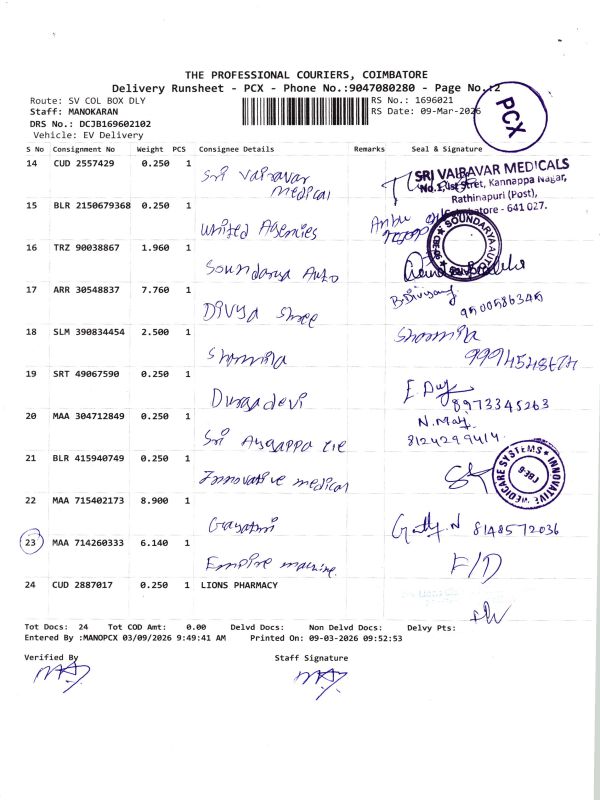 THE PROFESSIONAL COURIERS, COIMBATORE
Delivery Runsheet - PCX - Phone No.:9047080280 - Page No.:2
Route: SV COL BOX DLY
RS No.: 1696021
Staff: MANOKARAN
RS Date: 09-Mar-2026
DRS No.: DCJB169602102
Vehicle: EV Delivery
PCX
S No Consignment No Weight PCS Consignee Details Remarks Seal & Signature
14 CUD 2557429 0.250 1 Sri Vairavar Medical
SRI VAIRAVAR MEDICALS
No.1, 1st Stret, Kannappa Nagar,
Rathinapuri (Post),
Coimbatore - 641 027.
15 BLR 2150679368 0.250 1 United Agencies
Anbu
16 TRZ 90038867 1.960 1 Soundarya Auto
SOUNDARYA AUTO
17 ARR 30548837 7.760 1 Divya Shree
B.Divya 9500586345
18 SLM 390834454 2.500 1 Sharmila
Sharmila
19 SRT 49067590 0.250 1 Durgadevi
8973345263
20 MAA 304712849 0.250 1 Sri Ayyappa
N. May
8124299414
21 BLR 415940749 0.250 1 Innovative medical
INNOVATIVE MEDICARE SYSTEMS
CBE-6
22 MAA 715402173 8.900 1 Gayatri
8148572036
23 MAA 714260333 6.140 1 Empire machine
F/D
24 CUD 2887017 0.250 1 LIONS PHARMACY
Tot Docs: 24 Tot COD Amt: 0.00 Delvd Docs: Non Delvd Docs: Delvy Pts:
Entered By :MANOPCX 03/09/2026 9:49:41 AM Printed On: 09-03-2026 09:52:53
Verified By Staff Signature